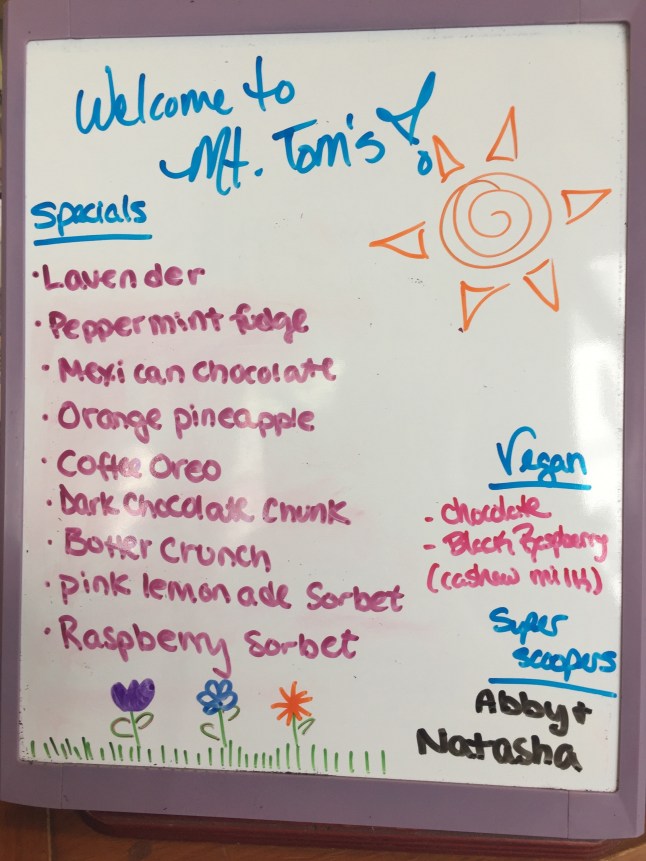 Welcome to
Mt. Tom's!
Specials
• Lavender
• Peppermint fudge
• Mexican chocolate
• Orange pineapple
• Coffee Oreo
• Dark Chocolate Chunk
• Butter Crunch
• pink lemonade Sorbet
• Raspberry Sorbet
Vegan
- chocolate
- Black Raspberry
(cashew milk)
Super
scoopers
Abby +
Natasha